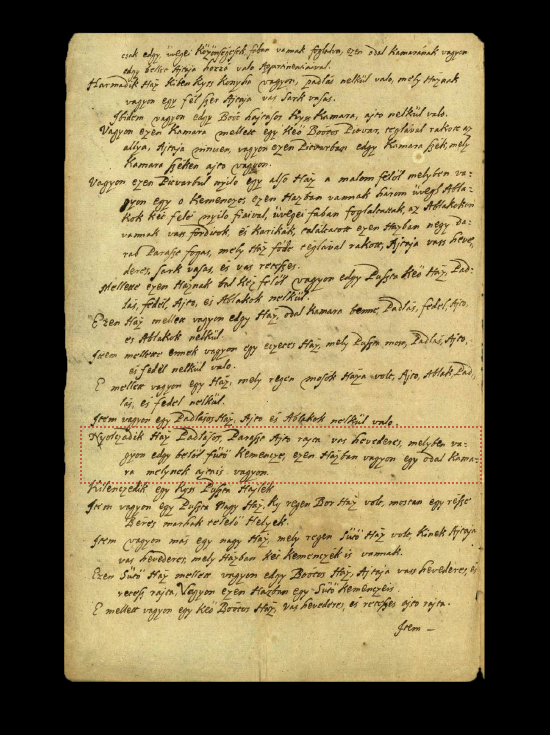 csak edgy, üvegei Közönségesek, fában vannak foglalva, ezen oldal Kamarának vagyon
edgy bellső Ajtaja hozzá való
Harmadik Ház kiben kyss Konyha vagyon, padlás nelkül való, mely Háznak
vagyon egy fél szer Ajtaja vas sark vasas.
Ibidem vagyon edgy Bolt hajtasos kyss Kamara, ajto nelkül való.
Vagyon ezen Kamara mellett egy Keö Boltos Pitvar, teglával rakott az
allya, Ajtaja nincsen, vagyon ezen Pitvarban edgy Kamara szék, mely
Kamara széken ajto vagyon.
Vagyon ezen Pitvarbul nyilo egy also Ház a malom felöl melyben va-
gyon egy o Kemenczes, ezen Házban vannak három üvegh Abla-
kok két felé nyilo fiaival, üvegei fában foglaltattak, az Ablakokon
vannak vass forditok, és Karikák, találtatott ezen Házban negy da-
rab Paraszt fogas, mely Ház földe teglával rakott, Ajtaja vass heve-
deres, sark vasas, és vas reteszes.
Mellette ezen Háznak bal kéz felöl vagyon edgy Puszta Keö Ház, Pad-
lás, fedél, Ajto, és Ablakok nelkül.
Ezen Ház mellett vagyon edgy Ház, oldal Kamara benne, Padlás, fedel, Ajto,
és Ablakok nelkül
Item mellette ennek vagyon egy Ház, mely Puszta most, Padlás, Ajto,
és fedel nelkül való.
E mellett vagyon egy Ház, mely regen mosók Háza volt, Ajto, Ablak, Pad-
lás, és fedel nelkül.
Item vagyon egy Padlasos Ház, Ajto és Ablakok nelkül való.
Nyolczadik Ház Padlasos, Paraszt Ajto rajta vas hevederes, melyben va-
gyon edgy belöl fütö Kemencze, ezen Házban vagyon egy oldal Kama-
ra melynek ajtais vagyon.
Kilenczedik egy kyss Puszta Hajlék
Item vagyon egy Puszta Nagy Ház, ky regen Bor Ház volt, mostan egy resze
Beres marhák telelö Helyek.
Item vagyon más egy nagy Ház, mely regen Sütö Ház volt, kinek Ajtaja
vas hevederes, mely Házban két Kemenczék is vannak.
Ezen Sütö Ház mellett vagyon edgy Boltos Ház, Ajtaja vass hevederes, és
retesz rajta, Vagyon ezen Házban egy Sütö Kemenczeis.
E mellett vagyon egy Keö Boltos Ház, vas hevederes, és reteszes ajto rajta.
Item –